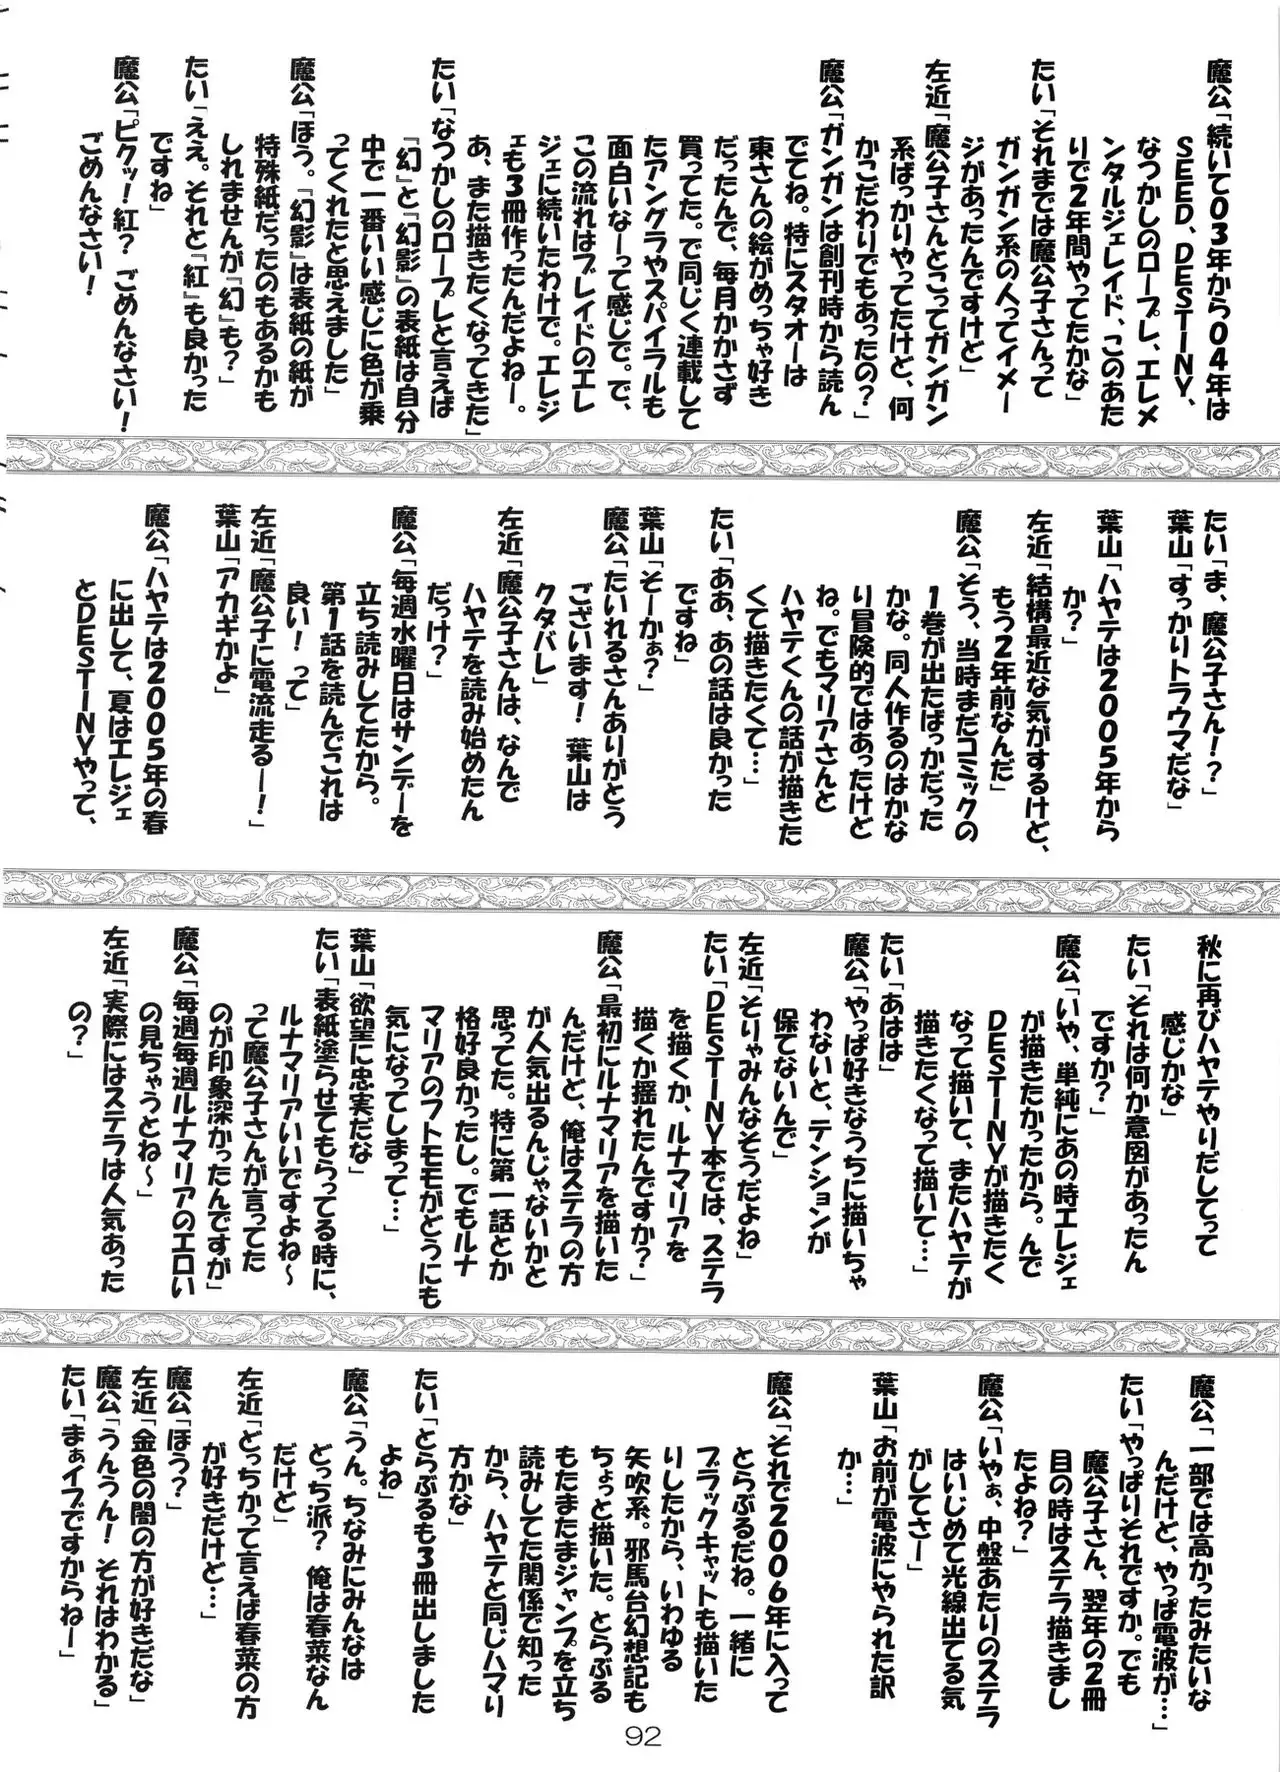 魔公「続いて03年から04年は
SEED、DESTINY、
なつかしのロープレ、エレメ
ンタルジェレイド、このあた
りで2年間やってたかな」
たい「それまでは魔公子さんって
ガンガン系の人ってイメー
ジがあったんですけど」
左近「魔公子さんとこってガンガン
系ばっかりやってたけど、何
かこだわりでもあったの？」
魔公「ガンガンは創刊時から読ん
でてね。特にスタオーは
東さんの絵がめっちゃ好き
だったんで、毎月かかさず
買ってた。で同じく連載して
たアングラやスパイラルも
面白いなーって感じで。で、
この流れはブレイドのエレ
ジェに続いたわけで。エレジ
ェも3冊作ったんだよねー。
あ、また描きたくなってきた」
たい「なつかしのロープレと言えば
『幻』と『幻影』の表紙は自分
中で一番いい感じに色が乗
ってくれたと思えました」
魔公「ほう。『幻影』は表紙の紙が
特殊紙だったのもあるかも
しれませんが『幻』も？」
たい「ええ。それと『紅』も良かった
ですね」
魔公「ピクッ！紅？ ごめんなさい！
ごめんなさい！
たい「ま、魔公子さん！？」
葉山「すっかりトラウマだな」
葉山「ハヤテは2005年から
か？」
左近「結構最近な気がするけど、
もう2年前なんだ」
魔公「そう、当時まだコミックの
1巻が出たばっかだった
かな。同人作るのはかな
り冒険的ではあったけど
ね。でもマリアさんと
ハヤテくんの話が描きた
くて描きたくて…」
たい「ああ、あの話は良かった
ですね」
葉山「そーかぁ？」
魔公「たいれるさんありがとう
ございます！ 葉山は
クタバレ」
左近「魔公子さんは、なんで
ハヤテを読み始めたん
だっけ？」
魔公「毎週水曜日はサンデーを
立ち読みしてたから。
第1話を読んでこれは
良い！って」
左近「魔公子に電流走るー！」
葉山「アカギかよ」
魔公「ハヤテは2005年の春
に出して、夏はエレジェ
とDESTINYやって、
秋に再びハヤテやりだしてって
感じかな」
たい「それは何か意図があったん
ですか？」
魔公「いや、単純にあの時エレジェ
が描きたかったから。んで
DESTINYが描きたく
なって描いて、またハヤテが
描きたくなって描いて…」
たい「あはは」
魔公「やっぱ好きなうちに描いちゃ
わないと、テンションが
保てないんで」
左近「そりゃみんなそうだよね」
たい「DESTINY本では、ステラ
を描くか、ルナマリアを
描くか揺れたんですか？」
魔公「最初にルナマリアを描いた
んだけど、俺はステラの方
が人気出るんじゃないかと
思ってた。特に第一話とか
格好良かったし。でもルナ
マリアのフトモモがどうにも
気になってしまって…」
葉山「欲望に忠実だな」
たい「表紙塗らせてもらってる時に、
ルナマリアいいですよね～
って魔公子さんが言ってた
のが印象深かったんですが」
魔公「毎週毎週ルナマリアのエロい
の見ちゃうとね～」
左近「実際にはステラは人気あった
の？」
魔公「一部では高かったみたいな
んだけど、やっぱ電波が…」
たい「やっぱりそれですか。でも
魔公子さん、翌年の2冊
目の時はステラ描きまし
たよね？」
魔公「いやぁ、中盤あたりのステラ
はいじめて光線出てる気
がしてさー」
葉山「お前が電波にやられた訳
か…」
魔公「それで2006年に入って
とらぶるだね。一緒に
ブラックキャットも描いた
りしたから、いわゆる
矢吹系。邪馬台幻想記も
ちょっと描いた。とらぶる
もたまたまジャンプを立ち
読みしてた関係で知った
から、ハヤテと同じハマり
方かな」
たい「とらぶるも3冊出しました
よね」
魔公「うん。ちなみにみんなは
どっち派？ 俺は春菜なん
だけど」
左近「どっちかって言えば春菜の方
が好きだけど…」
魔公「ほう？」
左近「金色の闇の方が好きだな」
魔公「うんうん！それはわかる」
たい「まぁイブですからねー」
92